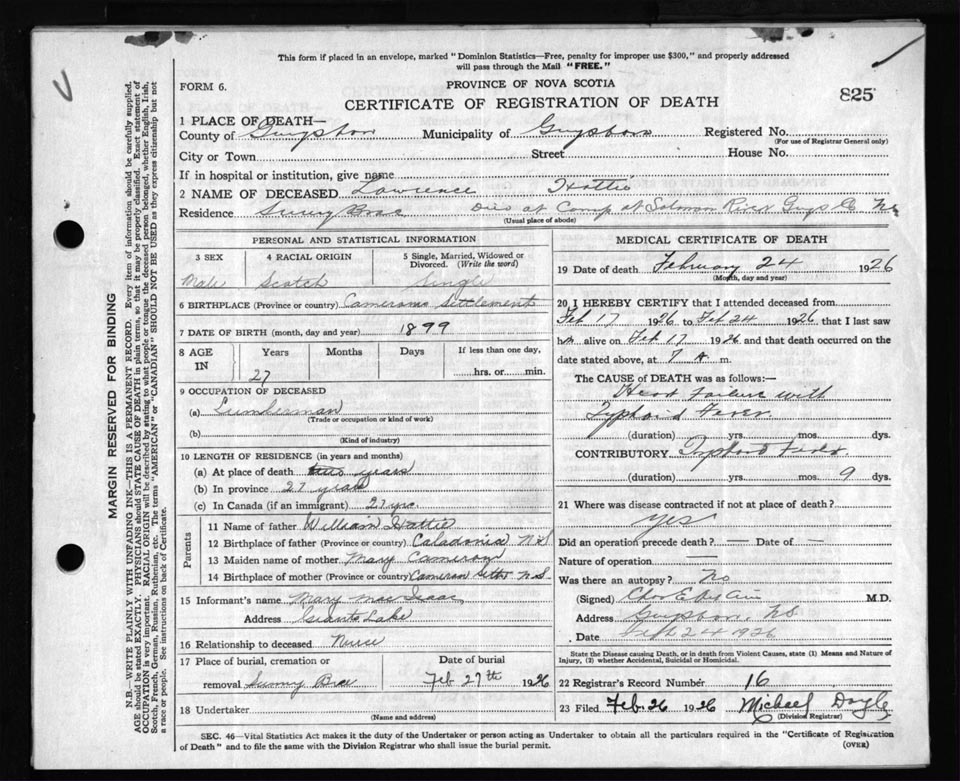 This form if placed in an envelope, marked "Dominion Statistics—Free, penalty for improper use $300," and properly addressed
will pass through the Mail "FREE."
FORM 6.
PROVINCE OF NOVA SCOTIA
825
CERTIFICATE OF REGISTRATION OF DEATH
1 PLACE OF DEATH—
County of Guysboro Municipality of Guysboro Registered No.
(For use of Registrar General only)
City or Town Street House No.
If in hospital or institution, give name
2 NAME OF DECEASED Lawrence Hattie
Residence Sunny Brae Died at Camp at Salmon River Guys Co NS
(Usual place of abode)
PERSONAL AND STATISTICAL INFORMATION
3 SEX 4 RACIAL ORIGIN 5 Single, Married, Widowed or
Divorced. (Write the word)
Male Scotch Single
6 BIRTHPLACE (Province or country) Camerons Settlement
7 DATE OF BIRTH (month, day and year) 1899
8 AGE IN Years Months Days If less than one day,
27 hrs. or min.
9 OCCUPATION OF DECEASED
(a) Lumberman
(Trade or occupation or kind of work)
(b)
(Kind of industry)
10 LENGTH OF RESIDENCE (in years and months)
(a) At place of death two years
(b) In province 27 years
(c) In Canada (if an immigrant) 27 yrs.
Parents
11 Name of father William Hattie
12 Birthplace of father (Province or country) Caladonia N S
13 Maiden name of mother Mary Cameron
14 Birthplace of mother (Province or country) Cameron Settm N.S.
15 Informant's name Mary Mac Isaac
Address Giants Lake
16 Relationship to deceased Nurse
17 Place of burial, cremation or Date of burial
removal Sunny Brae Feb 27th 1926
18 Undertaker
(Name and address)
MEDICAL CERTIFICATE OF DEATH
19 Date of death February 24 1926
(Month, day and year)
20 I HEREBY CERTIFY that I attended deceased from
Feb 17 1926 to Feb 24 1926, that I last saw
him alive on Feb 17 1926 and that death occurred on the
date stated above, at 7 A m.
The CAUSE OF DEATH was as follows:—
Heart failure with
Typhoid Fever
(duration) yrs. mos. dys.
CONTRIBUTORY Typhoid Fever
(duration) yrs. mos. 9 dys.
21 Where was disease contracted if not at place of death?
Yes
Did an operation precede death? — Date of —
Nature of operation —
Was there an autopsy? No
(Signed) M.D.
Address Guysboro, N.S.
Date 24 1926
State the Disease causing Death, or in death from Violent Causes, state (1) Means and Nature of
Injury, (2) whether Accidental, Suicidal or Homicidal.
22 Registrar's Record Number 16
23 Filed Feb. 26 1926 Michael Doyle
(Division Registrar)
SEC. 46—Vital Statistics Act makes it the duty of the Undertaker or person acting as Undertaker to obtain all the particulars required in the "Certificate of Registration
of Death" and to file the same with the Division Registrar who shall issue the burial permit.
(OVER)
MARGIN RESERVED FOR BINDING
N.B.—WRITE PLAINLY WITH UNFADING INK—THIS IS A PERMANENT RECORD. Every item of information should be carefully supplied.
AGE should be stated EXACTLY. PHYSICIANS should STATE CAUSE OF DEATH in plain terms, so that it may be properly classified. Exact statement of
OCCUPATION is very important. RACIAL ORIGIN will be described by stating to what people or tongue the deceased person belonged, whether English, Irish,
Scotch, French, German, Russian, Ruthenian, etc. The terms "AMERICAN" or "CANADIAN" SHOULD NOT BE USED as they express citizenship but not
a race or people. See instructions on back of Certificate.